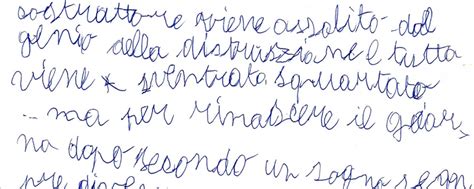 sostrattore viene assolito dal
genio della distruzione e tutta
viene sventrata squartata
.. ma per rinascere il gior
no dopo secondo un sogno sem
pre